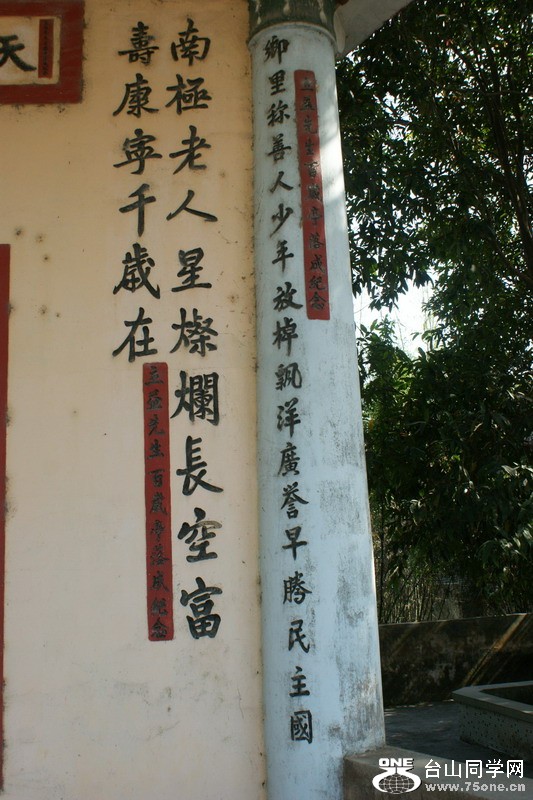 鄉里称善人少年放棹飄洋廣譽早騰民主國
先生百歲亭落成紀念
南極老人星燦爛長空富
壽康寧千歲在
立先生百歲亭落成紀念
天
ONE 台山同学网
www.75one.cn